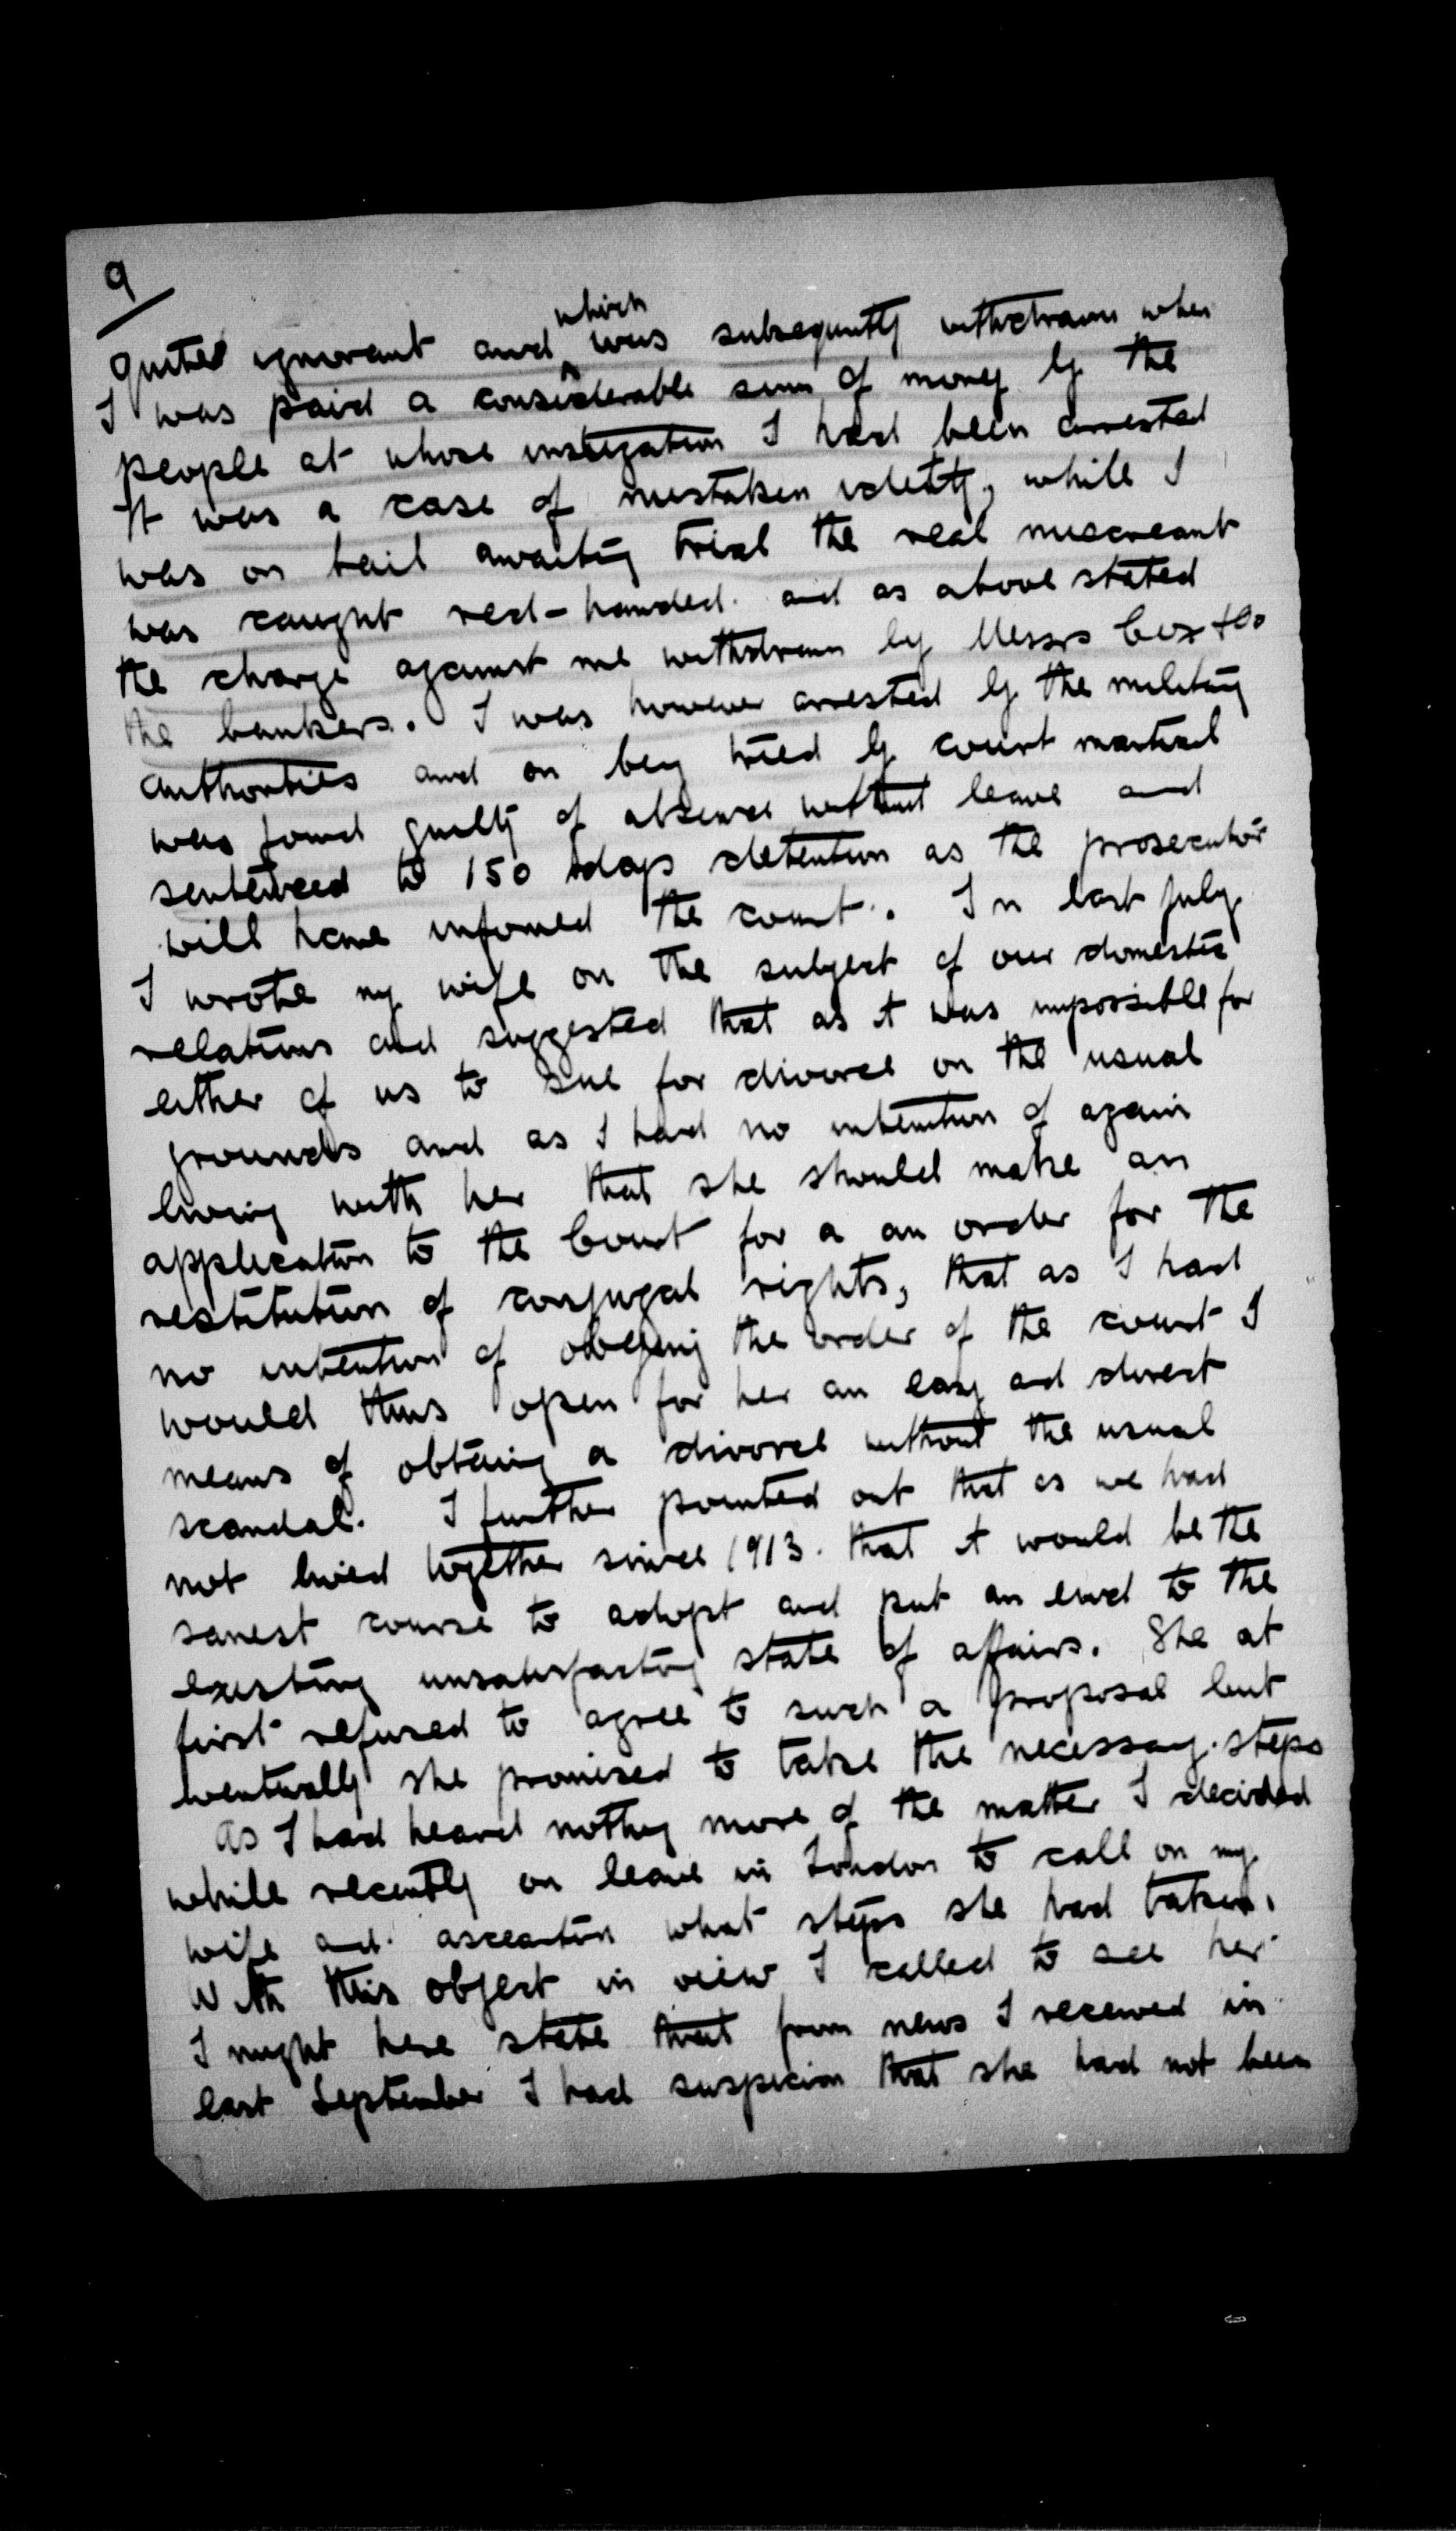 9
quite ignorant and which was subsequently withdrawn when
I was paid a considerable sum of money by the
people at whose instigation I had been arrested
It was a case of mistaken identity, while I
was on bail awaiting trial the real miscreant
was caught red-handed. and as above stated
the charge against me withdrawn by Messrs Cox & Co
the bankers. I was however arrested by the military
authorities and on being tried by court martial
was found guilty of absence without leave and
sentenced to 150 days detention as the prosecutor
will have informed the court. In last July
I wrote my wife on the subject of our domestic
relations and suggested that as it was impossible for
either of us to sue for divorce on the usual
grounds and as I had no intention of again
living with her that she should make an
application to the Court for a an order for the
restitution of conjugal rights, that as I had
no intention of obeying the order of the court I
would thus open for her an easy and direct
means of obtaining a divorce without the usual
scandal. I further pointed out that as we had
not lived together since 1913. that it would be the
sanest course to adopt and put an end to the
existing unsatisfactory state of affairs. She at
first refused to agree to such a proposal but
eventually she promised to take the necessary steps
As I had heard nothing more of the matter I decided
while recently on leave in London to call on my
wife and ascertain what steps she had taken.
With this object in view I called to see her
I might here state that from news I received in
last September I had suspicion that she had not been